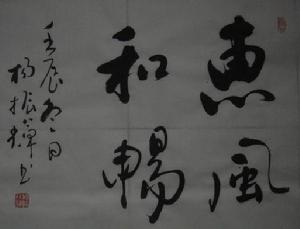 惠風
和暢
壬辰冬月
楊振輝書